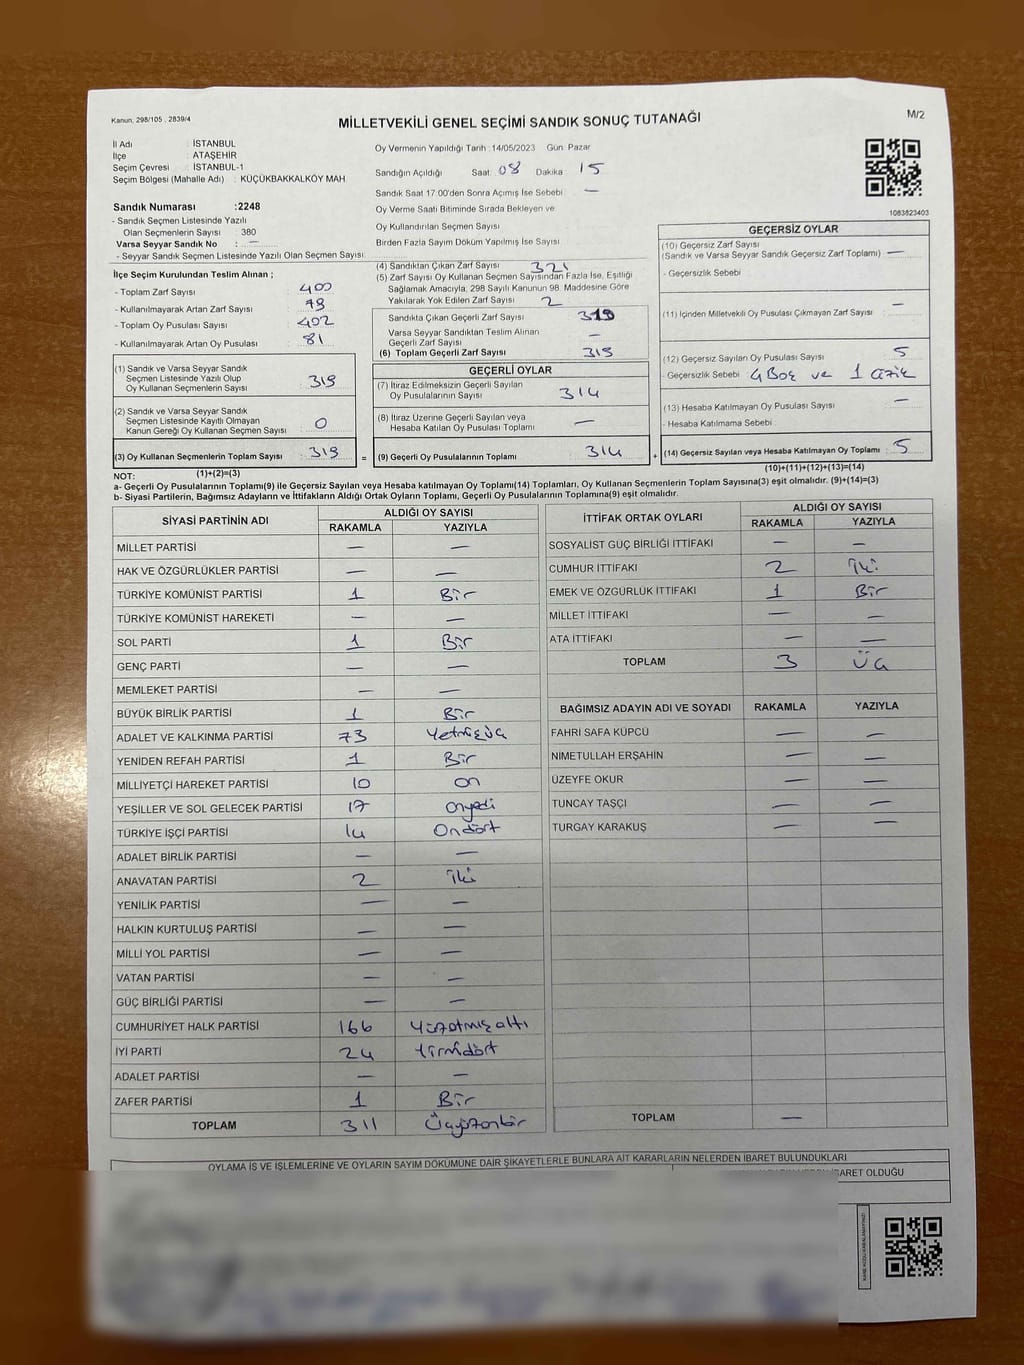 Kanun, 298/105 , 2839/4
MİLLETVEKİLİ GENEL SEÇİMİ SANDIK SONUÇ TUTANAĞI
M/2
İl Adı : İSTANBUL
İlçe : ATAŞEHİR
Seçim Çevresi : İSTANBUL-1
Seçim Bölgesi (Mahalle Adı) : KÜÇÜKBAKKALKÖY MAH.
Sandık Numarası :2248
- Sandık Seçmen Listesinde Yazılı
Olan Seçmenlerin Sayısı : 380
Varsa Seyyar Sandık No : —
- Seyyar Sandık Seçmen Listesinde Yazılı Olan Seçmen Sayısı:
Oy Vermenin Yapıldığı Tarih :14/05/2023 Gün: Pazar
Sandığın Açıldığı Saat: 08 Dakika: 15
Sandık Saat 17:00'den Sonra Açımış İse Sebebi: —
Oy Verme Saati Bitiminde Sırada Bekleyen ve
Oy Kullandırılan Seçmen Sayısı :
Birden Fazla Sayım Döküm Yapılmış İse Sayısı :
1083823403
İlçe Seçim Kurulundan Teslim Alınan ;
- Toplam Zarf Sayısı : 400
- Kullanılmayarak Artan Zarf Sayısı : 79
- Toplam Oy Pusulası Sayısı : 402
- Kullanılmayarak Artan Oy Pusulası : 81
(1) Sandık ve Varsa Seyyar Sandık
Seçmen Listesinde Yazılı Olup
Oy Kullanan Seçmenlerin Sayısı : 319
(2) Sandık ve Varsa Seyyar Sandık
Seçmen Listesinde Kayıtlı Olmayan
Kanun Gereği Oy Kullanan Seçmen Sayısı : 0
(3) Oy Kullanan Seçmenlerin Toplam Sayısı : 319
(1)+(2)=(3)
(4) Sandıktan Çıkan Zarf Sayısı : 321
(5) Zarf Sayısı Oy Kullanan Seçmen Sayısından Fazla İse, Eşitliği
Sağlamak Amacıyla, 298 Sayılı Kanunun 98. Maddesine Göre
Yakılarak Yok Edilen Zarf Sayısı : 2
Sandıkta Çıkan Geçerli Zarf Sayısı : 319
Varsa Seyyar Sandıktan Teslim Alınan
Geçerli Zarf Sayısı : —
(6) Toplam Geçerli Zarf Sayısı : 319
GEÇERLİ OYLAR
(7) İtiraz Edilmeksizin Geçerli Sayılan
Oy Pusulalarının Sayısı : 314
(8) İtiraz Üzerine Geçerli Sayılan veya
Hesaba Katılan Oy Pusulası Toplamı : —
= (9) Geçerli Oy Pusulalarının Toplamı : 314
GEÇERSİZ OYLAR
(10) Geçersiz Zarf Sayısı
(Sandık ve Varsa Seyyar Sandık Geçersiz Zarf Toplamı) : —
- Geçersizlik Sebebi :
(11) İçinden Milletvekili Oy Pusulası Çıkmayan Zarf Sayısı : —
(12) Geçersiz Sayılan Oy Pusulası Sayısı : 5
- Geçersizlik Sebebi : 4 Boş ve 1 çizik
(13) Hesaba Katılmayan Oy Pusulası Sayısı : —
- Hesaba Katılmama Sebebi :
+ (14) Geçersiz Sayılan veya Hesaba Katılmayan Oy Toplamı : 5
(10)+(11)+(12)+(13)=(14)
NOT:
a- Geçerli Oy Pusulalarının Toplamı(9) ile Geçersiz Sayılan veya Hesaba Katılmayan Oy Toplamı(14) Toplamları, Oy Kullanan Seçmenlerin Toplam Sayısına(3) eşit olmalıdır. (9)+(14)=(3)
b- Siyasi Partilerin, Bağımsız Adayların ve İttifakların Aldığı Ortak Oyların Toplamı, Geçerli Oy Pusulalarının Toplamına(9) eşit olmalıdır.
SİYASİ PARTİNİN ADI ALDIĞI OY SAYISI
RAKAMLA YAZIYLA
MİLLET PARTİSİ — —
HAK VE ÖZGÜRLÜKLER PARTİSİ — —
TÜRKİYE KOMÜNİST PARTİSİ 1 Bir
TÜRKİYE KOMÜNİST HAREKETİ — —
SOL PARTİ 1 Bir
GENÇ PARTİ — —
MEMLEKET PARTİSİ — —
BÜYÜK BİRLİK PARTİSİ 1 Bir
ADALET VE KALKINMA PARTİSİ 73 Yetmişüç
YENİDEN REFAH PARTİSİ 1 Bir
MİLLİYETÇİ HAREKET PARTİSİ 10 on
YEŞİLLER VE SOL GELECEK PARTİSİ 17 onyedi
TÜRKİYE İŞÇİ PARTİSİ 14 Ondört
ADALET BİRLİK PARTİSİ — —
ANAVATAN PARTİSİ 2 İki
YENİLİK PARTİSİ — —
HALKIN KURTULUŞ PARTİSİ — —
MİLLİ YOL PARTİSİ — —
VATAN PARTİSİ — —
GÜÇ BİRLİĞİ PARTİSİ — —
CUMHURİYET HALK PARTİSİ 166 Yüzatmışaltı
İYİ PARTİ 24 Yirmidört
ADALET PARTİSİ — —
ZAFER PARTİSİ 1 Bir
TOPLAM 311 Üçyüzonbir
İTTİFAK ORTAK OYLARI ALDIĞI OY SAYISI
RAKAMLA YAZIYLA
SOSYALİST GÜÇ BİRLİĞİ İTTİFAKI — —
CUMHUR İTTİFAKI 2 İki
EMEK VE ÖZGÜRLÜK İTTİFAKI 1 Bir
MİLLET İTTİFAKI — —
ATA İTTİFAKI — —
TOPLAM 3 Üç
BAĞIMSIZ ADAYIN ADI VE SOYADI RAKAMLA YAZIYLA
FAHRİ SAFA KÜPCÜ — —
NİMETULLAH ERŞAHİN — —
ÜZEYFE OKUR — —
TUNCAY TAŞÇI — —
TURGAY KARAKUŞ — —
TOPLAM —
OYLAMA İŞ VE İŞLEMLERİNE VE OYLARIN SAYIM DÖKÜMÜNE DAİR ŞİKAYETLERLE BUNLARA AİT KARARLARIN NELERDEN İBARET BULUNDUKLARI
İBARET OLDUĞU